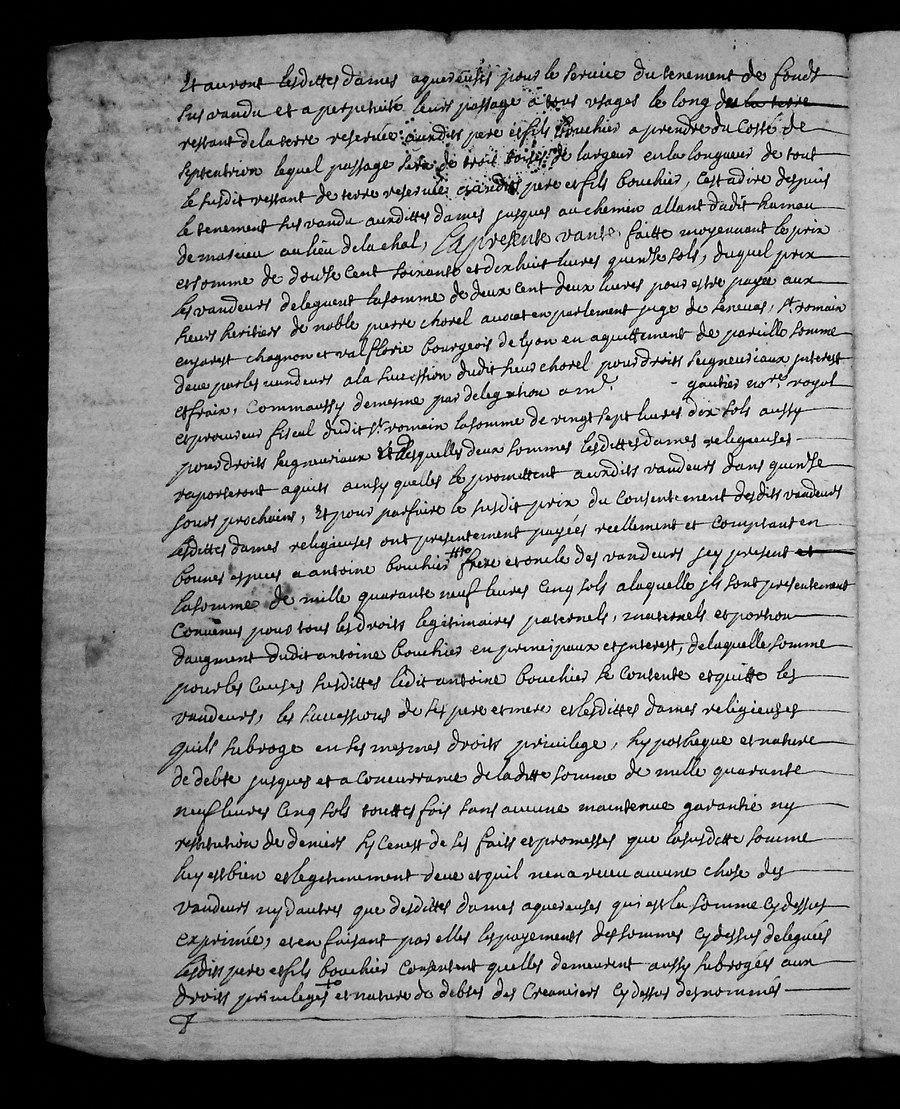 Et auront lesdittes dames aquereuses pour le service du tenement de fonds
sus vandu et a perpetuité leurs passage a tous usages le long de la terre
restant de la terre reservée auxdits pere et fils bouchier a prendre du costé de
septentrion lequel passage sera de trois toises de largeur en la longueur de tout
le susdit restant de terre reservée auxdits pere et fils bouchier, cest adire despuis
le tenement sus vandu auxdittes dames jusques au chemin allant dudit hameau
de masieu au lieu de la chal, La presente vante faitte moyennant le prix
et somme de douse cent soixante et dix huit livres quinse sols, duquel prix
les vandeurs deleguent la somme de deux cent deux livres pour estre payée aux
sieurs heritiers de noble pierre chorel avocat en parlement juge de seneuas, st romain
en jarest chagnon et val florie bourgeois de lyon en aquittement de pareille somme
deue par les vandeurs a la succession dudit sieur chorel pour droits seigneuriaux interest
et fraix, comm'aussy de mesme par delegation a mr. - gautier nore. royal
et procureur fiscal dudit st. romain la somme de vingt sept livres dix sols aussy
pour droits seigneuriaux desquelles deux sommes lesdittes dames religieuses
raporteront aquits ainsy quelles le promettent auxdits vandeurs dans quinse
jours prochains, Et pour parfaire le susdit prix du consentement desdits vandeurs
lesdittes dames religieuses ont presentement payées reellement et comptant en
bonnes espuces a antoine bouchier frere et oncle des vandeurs jcy present et
la somme de mille quarante neuf livres cinq sols a laquelle jls sont presentement
convenus pour tous les droits legitimaires paternels, maternels et portion
daugment dudit antoine bouchier en principaux et interest, de laquelle somme
pour les causes susdittes ledit antoine bouchier se contente et quitte les
vandeurs, les successions de ses pere et mere et lesdittes dames religieuses
quils subroge en ses mesmes droits privilege, hypotheque et nature
de debte jusques et a concurrance de laditte somme de mille quarante
neuf livres cinq sols touttes fois sans aucune maintenue garantie ny
restitution de deniers sy cenest de ses faits et promesses que la susditte somme
luy est bien et legitimement deue et quil nen a receu aucune chose des
vandeurs ny dautres que desdittes dames aquereuses qui est la somme cy dessus
exprimée, et en faisant par elles les payements des sommes cy dessus deleguées
lesdits pere et fils bouchier consentent quelles demeurent aussy subrogés aux
droits privileges et nature de debtes des creanciers cy dessus desnommés